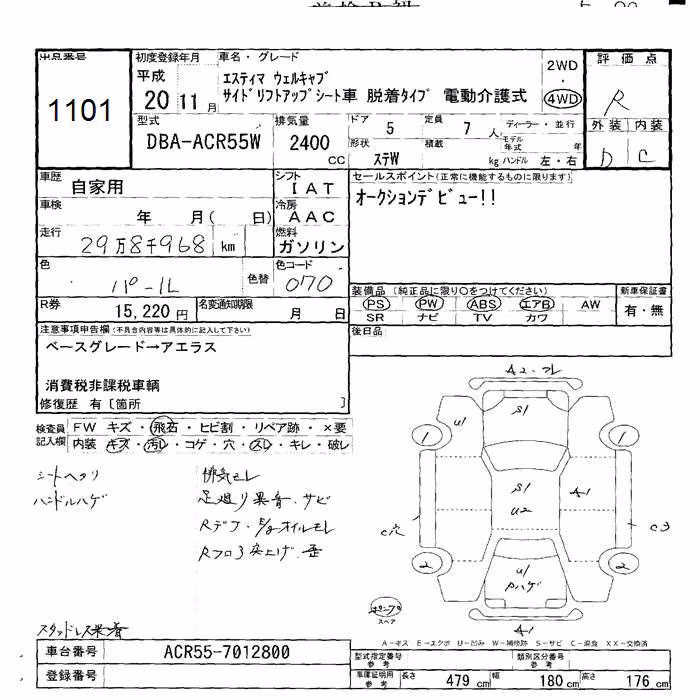 出品番号
1101
初度登録年月
平成
20 11 月
車名・グレード
エスティマ ウェルキャブ
サイドリフトアップシート車 脱着タイプ 電動介護式
2WD
・
4WD
評価点
R
外装 内装
D C
型式
DBA-ACR55W
排気量
2400
CC
ドア 5
定員 7 人
ディーラー・並行
モデル年式 年
形状 ステW
積載 kg
ハンドル 左・右
車歴
自家用
シフト
IAT
車検
年 月( 日)
冷房
AAC
走行
29万8千968 km
燃料
ガソリン
色
パール
色替
色コード
070
R券
15,220 円
名変通知期限
月 日
セールスポイント(正常に機能するものに限ります)
オークションデビュー!!
装備品 (純正品に限り○をつけてください)
PS PW ABS エアB AW
SR ナビ TV カワ
新車保証書
有・無
後日品
注意事項申告欄(不具合内容等は具体的に記入して下さい)
ベースグレード→アエラス
消費税非課税車輌
修復歴 有 [箇所 ]
検査員記入欄
FW キズ・飛石・ヒビ割・リペア跡・×要
内装 キズ・汚レ・コゲ・穴・スレ・キレ・破レ
シートヘタリ
ハンドルハゲ
排気モレ
足廻り異音・サビ
Rデフ・E/gオイルモレ
Rフロア突上げ
スタッドレス
A2
S1
U1
1
1
S1
U2
A1
C穴
C3
2
2
U1
Pハゲ
スペア
A1
A-キズ E-エクボ U-凹み W-補修跡 S-サビ C-腐食 XX-交換済
車台番号
ACR55-7012800
登録番号
型式指定番号
参考
類別区分番号
参考
車庫証明用
参考
長さ 479 cm 幅 180 cm 高さ 176 cm